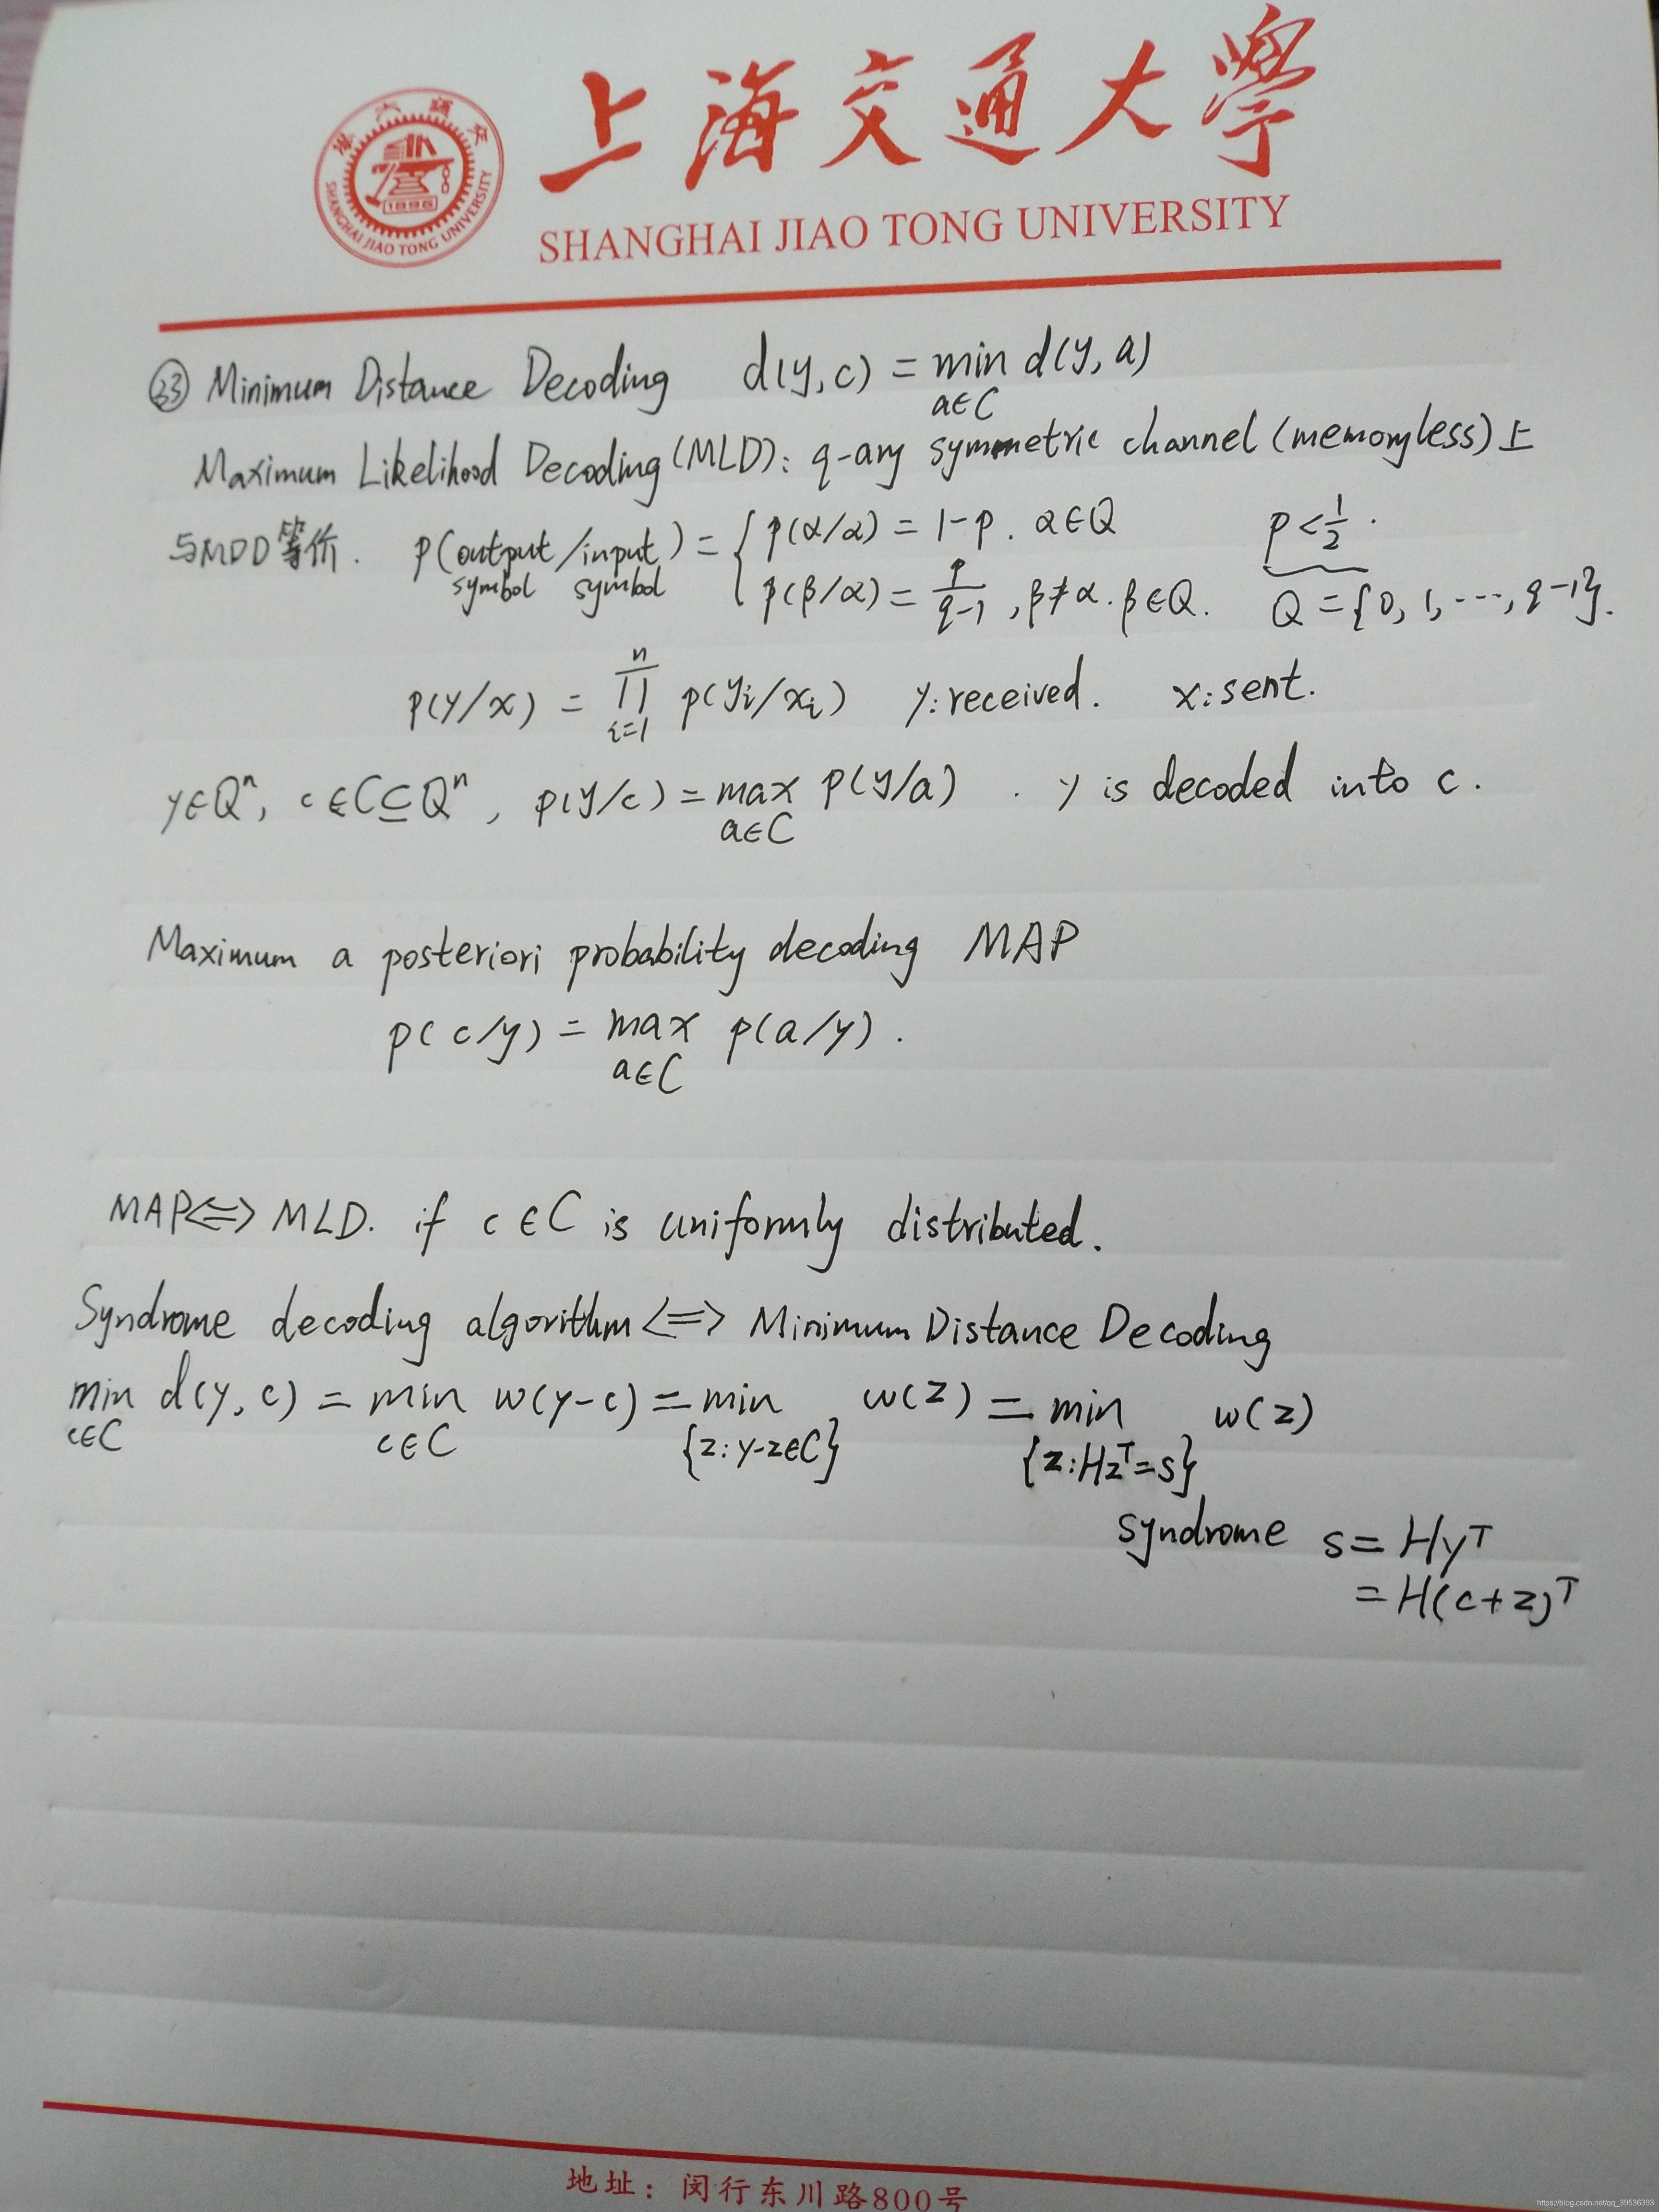 上海交通大學
SHANGHAI JIAO TONG UNIVERSITY
1896
SHANGHAI JIAO TONG UNIVERSITY
㉝ Minimum Distance Decoding d(y,c) = min_{a∈C} d(y,a)
Maximum Likelihood Decoding (MLD): q-ary symmetric channel (memoryless) 上
与MDD等价. p(output symbol/input symbol) = { p(α/α) = 1-p. α∈Q p<1/2.
p(β/α) = p/(q-1), β≠α. β∈Q. Q={0, 1, ..., q-1}.
p(y/x) = ∏_{i=1}^{n} p(y_i/x_i) y: received. x: sent.
y∈Q^n, c∈C⊆Q^n, p(y/c) = max_{a∈C} p(y/a). y is decoded into c.
Maximum a posteriori probability decoding MAP
p(c/y) = max_{a∈C} p(a/y).
MAP⇔MLD. if c∈C is uniformly distributed.
Syndrome decoding algorithm ⇔ Minimum Distance Decoding
min_{c∈C} d(y,c) = min_{c∈C} w(y-c) = min_{{z:y-z∈C}} w(z) = min_{{z:Hz^T=s}} w(z)
syndrome s = Hy^T
= H(c+z)^T
地址：闵行东川路800号
https://blog.csdn.net/qq_39536393